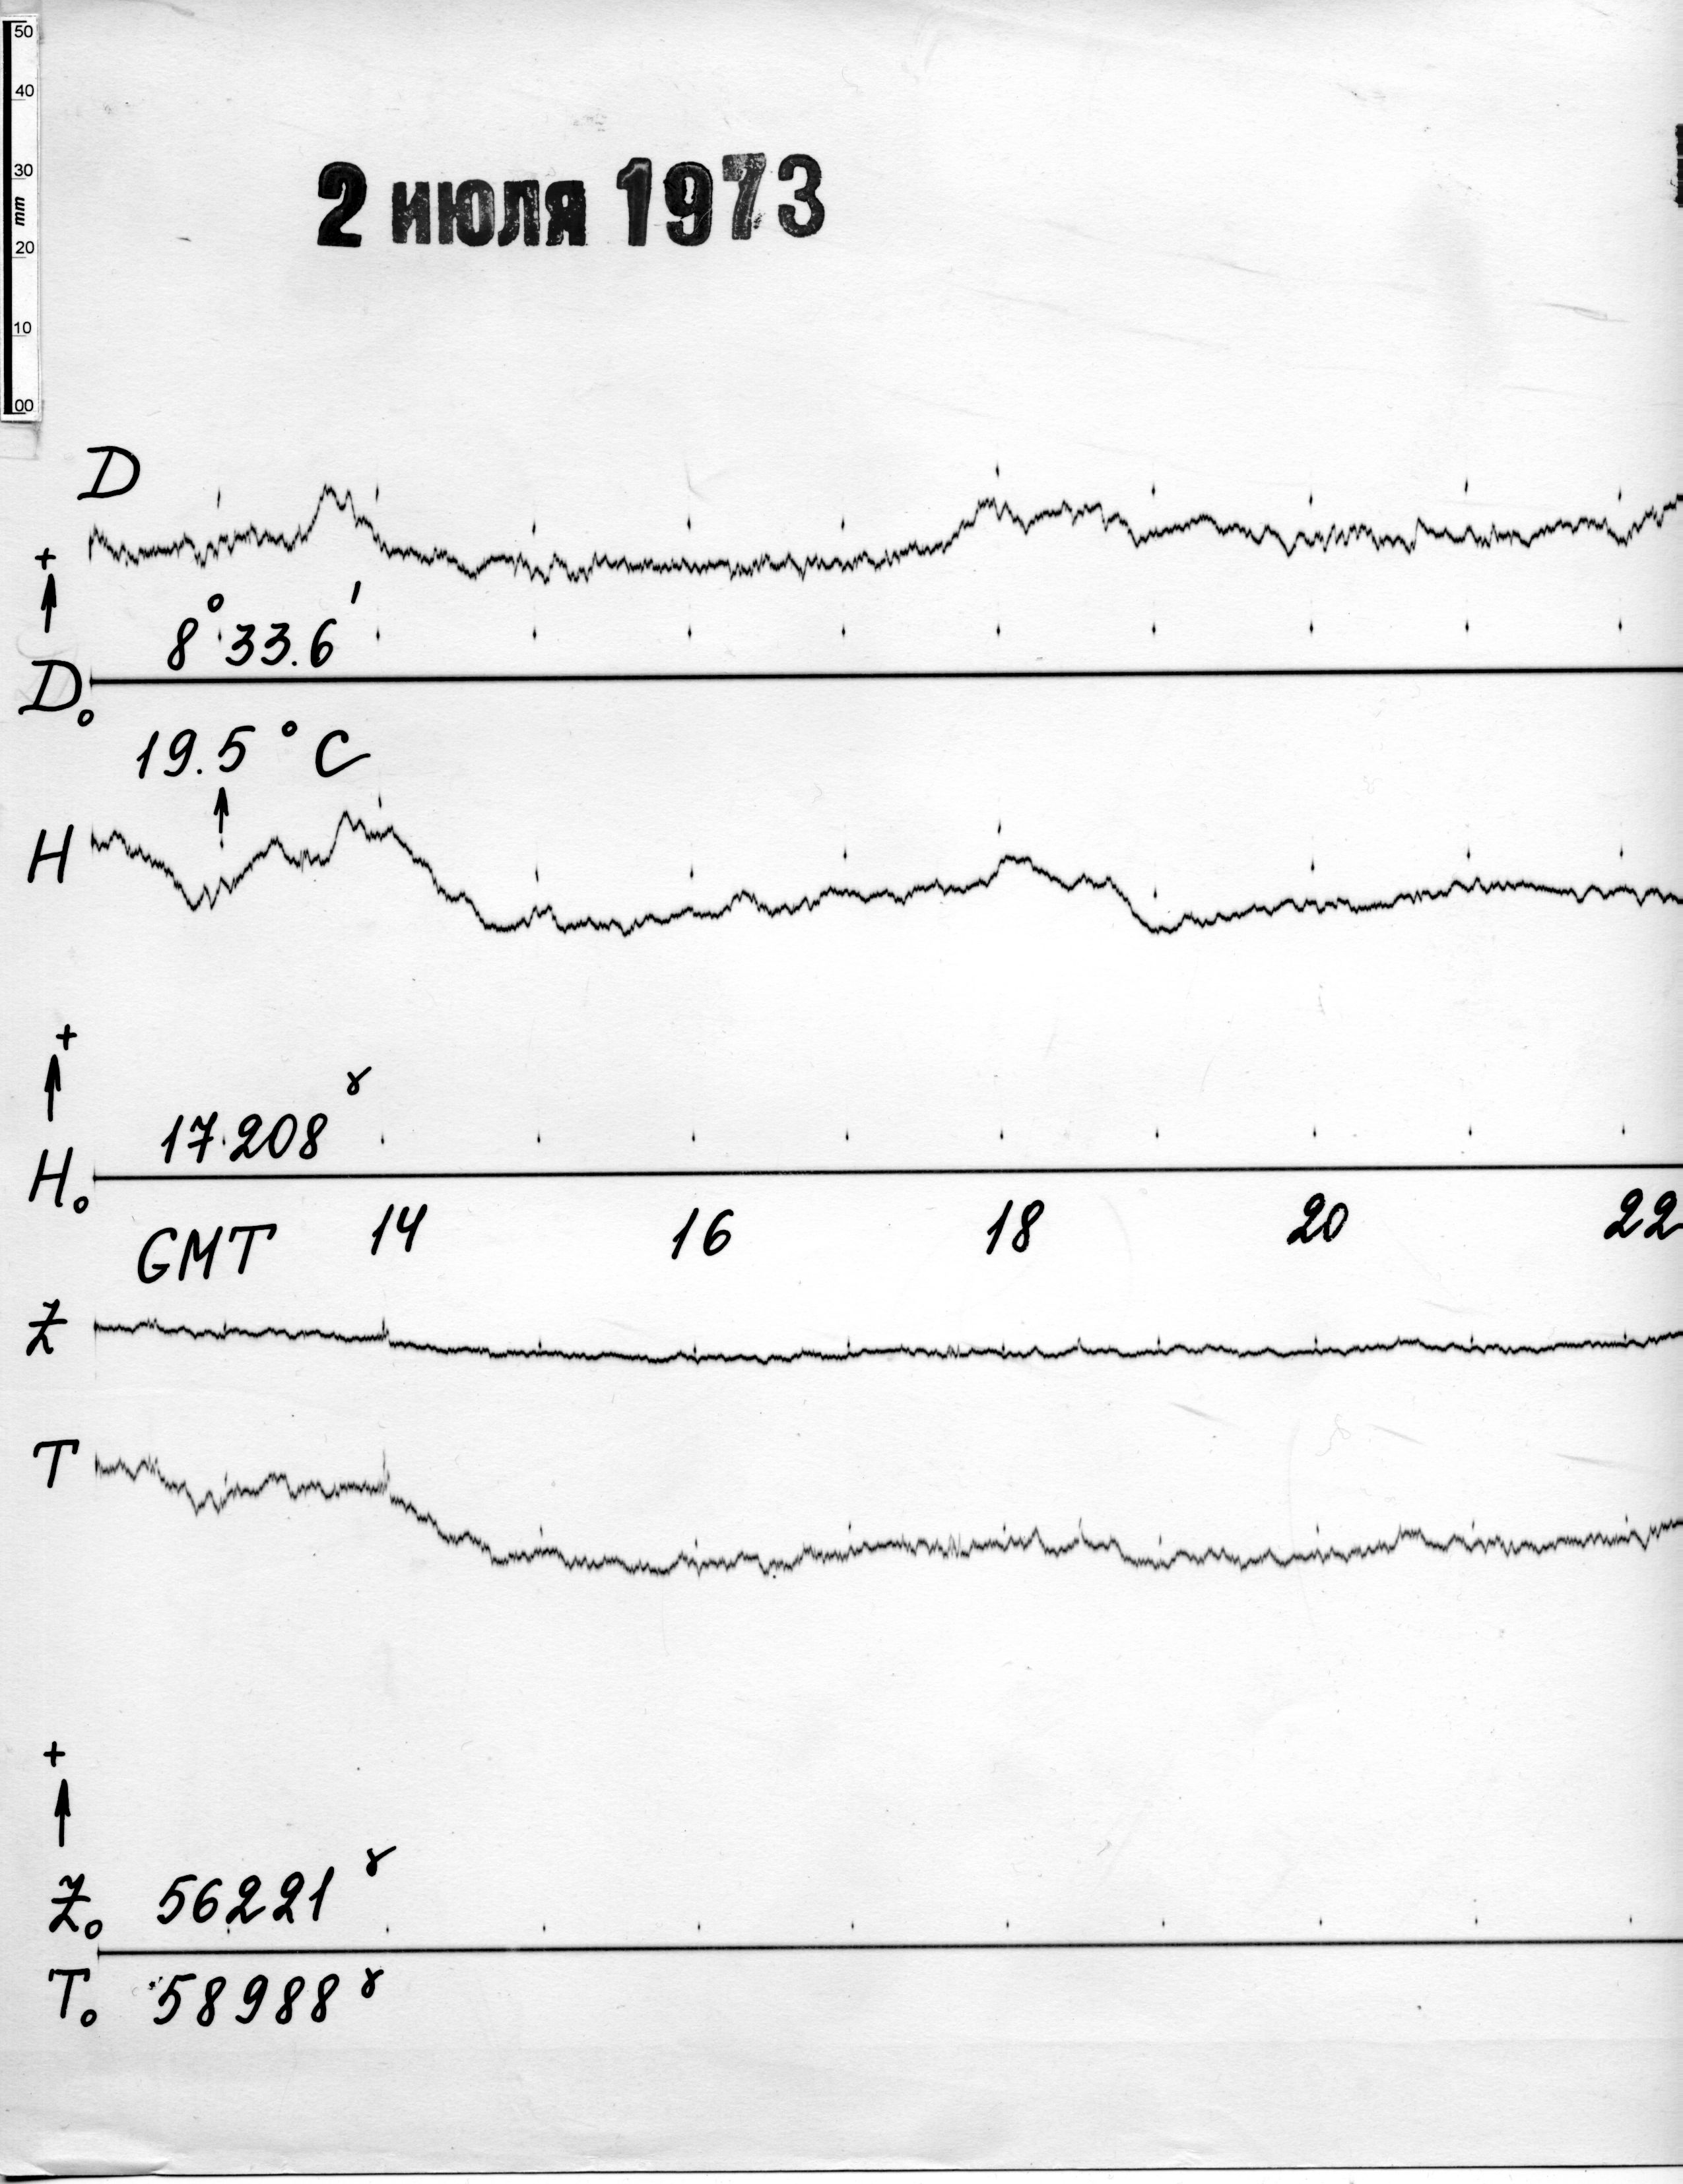 50
40
30
mm
20
10
00
2 июля 1973
D
+
8°33.6′
D₀
19.5°C
H
+
17208 γ
H₀
GMT 14 16 18 20 22
Z
T
+
Z₀ 56221 γ
T₀ 58988 γ